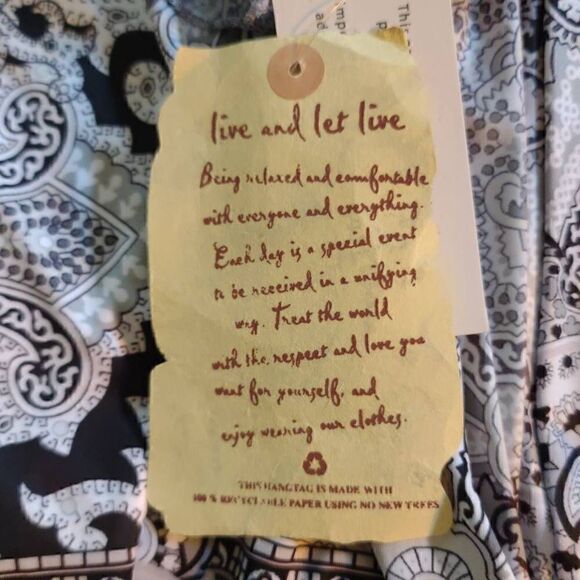 live and let live
Being relaxed and comfortable
with everyone and everything.
Each day is a special event
to be received in a unifying
way. Treat the world
with the respect and love you
want for yourself, and
enjoy wearing our clothes.
THIS HANGTAG IS MADE WITH
100 % RECYCLABLE PAPER USING NO NEW TREES
This
p
impo
ad